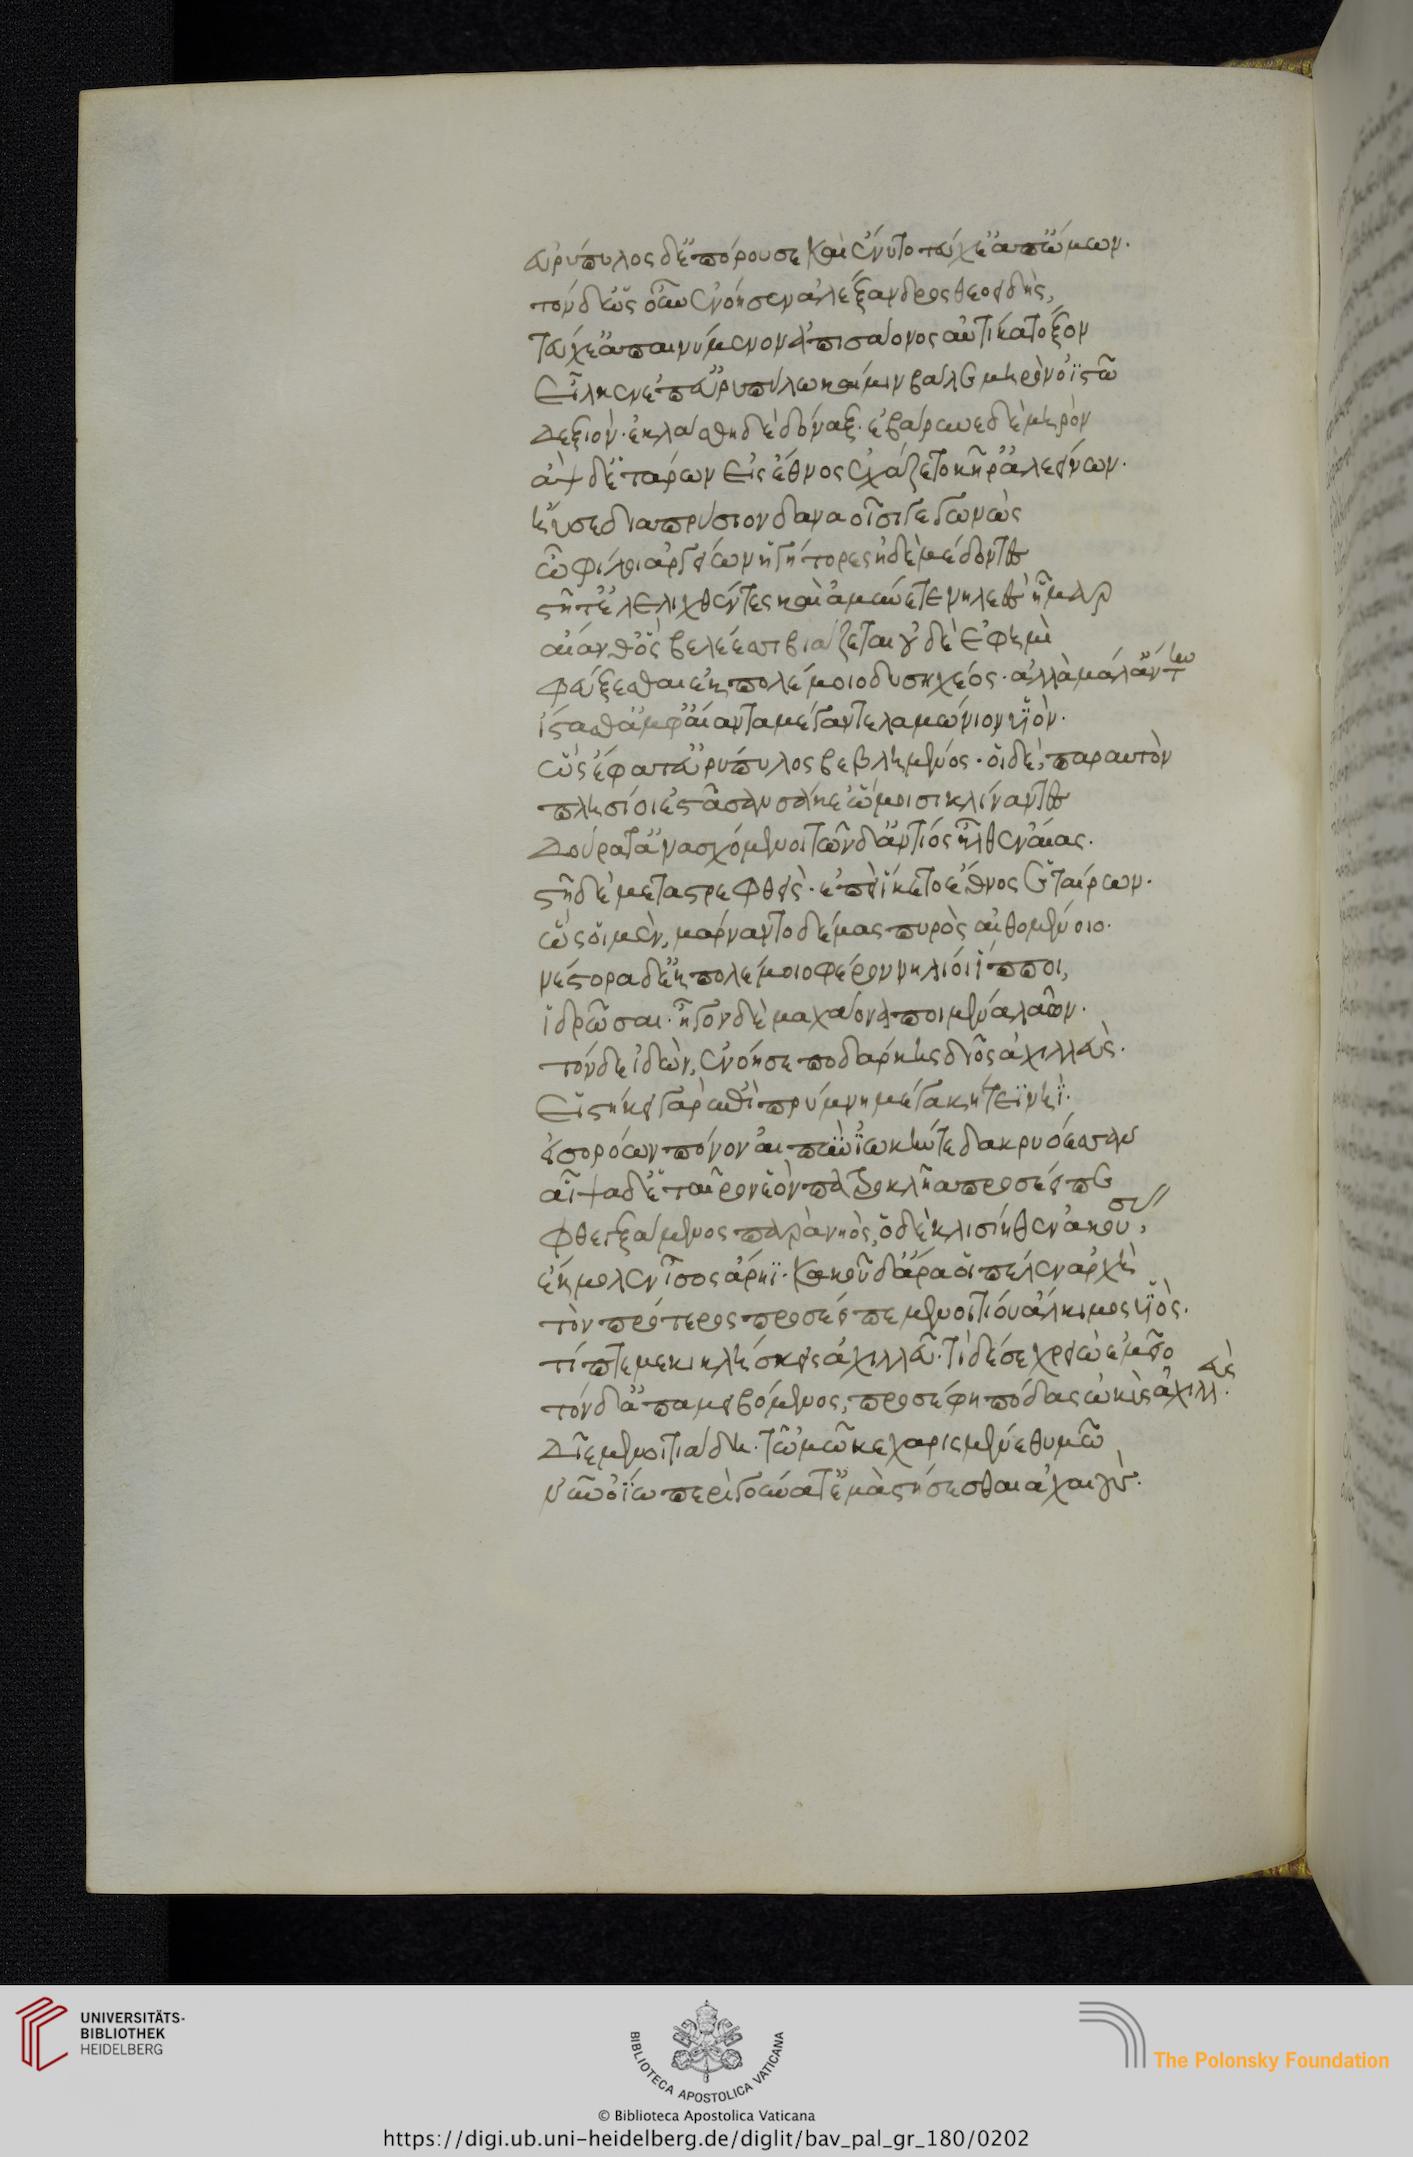 εὐρύπυλος δ' ἐπόρουσε καὶ αἴνυτο τεύχε' ἀπ' ὤμων.
τὸν δ' ὡς οὖν ἐνόησεν ἀλέξανδρος θεοειδὴς,
τεύχε' ἀπαινύμενον ἀπισάονος αὐτίκα τόξον
εἷλκεν ἐπ' εὐρυπύλω καί μιν βάλε μηρὸν ὀϊστῶ
δεξιόν· ἐκλάσθη δὲ δόναξ· ἐβάρυνε δὲ μηρὸν
ἂψ δ' ἑτάρων εἰς ἔθνος ἐχάζετο κῆρ' ἀλεείνων.
ἤυσε διαπρύσιον δαναοῖσι γεγωνὼς
ὦ φίλοι ἀργείων ἡγήτορες ἠδὲ μέδοντες
στῆτ' ἐλελιχθέντες καὶ ἀμύνετε νηλεὲς ἦμαρ
αἴανθ' ὃς βελέεσσι βιάζεται οὐδέ ἑ φημὶ
φεύξεσθαι ἐκ πολέμοιο δυσηχέος· ἀλλὰ μάλ' ἄντην
ἵστασθ' ἀμφ' αἴαντα μέγαν τελαμώνιον υἱόν.
ὣς ἔφατ' εὐρύπυλος βεβλημένος· οἱ δὲ παρ' αὐτὸν
πλησίοι ἔστασαν σάκε' ὤμοισι κλίναντες
δούρατ' ἀνασχόμενοι τῶν δ' ἀντίος ἦλθεν αἴας.
στῆ δὲ μεταστρεφθεὶς· ἐπεὶ ἵκετο ἔθνος ἑταίρων.
ὣς οἱ μὲν, μάρναντο δέμας πυρὸς αἰθομένοιο.
νέστορα δ' ἐκ πολέμοιο φέρον νηλήϊοι ἵπποι,
ἱδρῶσαι· ἦγον δὲ μαχάονα ποιμένα λαῶν.
τὸν δὲ ἰδὼν, ἐνόησε ποδάρκης δῖος ἀχιλλεὺς.
εἱστήκει γὰρ ἐπὶ πρύμνη μεγακήτεϊ νηῒ.
εἰσορόων πόνον αἰπὺν ἰῶκά τε δακρυόεσσαν
αἶψα δ' ἑταῖρον ἑὸν πατροκλῆα προσέειπε
φθεγξάμενος παρὰ νηὸς, ὁ δὲ κλισίηθεν ἀκούσας,
ἔκμολεν ἶσος ἄρηϊ· κακοῦ δ' ἄρα οἱ πέλεν ἀρχὴ
τὸν πρότερος προσέειπε μενοιτίου ἄλκιμος υἱὸς.
τίπτε με κικλήσκεις ἀχιλλεῦ· τί δέ σε χρεὼ ἐμεῖο
τὸν δ' ἀπαμειβόμενος, προσέφη πόδας ὠκὺς ἀχιλλεὺς.
δῖε μενοιτιάδη· τῶ ἐμῶ κεχαρισμένε θυμῶ
νῦν ὀΐω περὶ γούνατ' ἐμὰ στήσεσθαι ἀχαιοὺς.
UNIVERSITÄTS-
BIBLIOTHEK
HEIDELBERG
BIBLIOTECA APOSTOLICA VATICANA
The Polonsky Foundation
© Biblioteca Apostolica Vaticana
https://digi.ub.uni-heidelberg.de/diglit/bav_pal_gr_180/0202